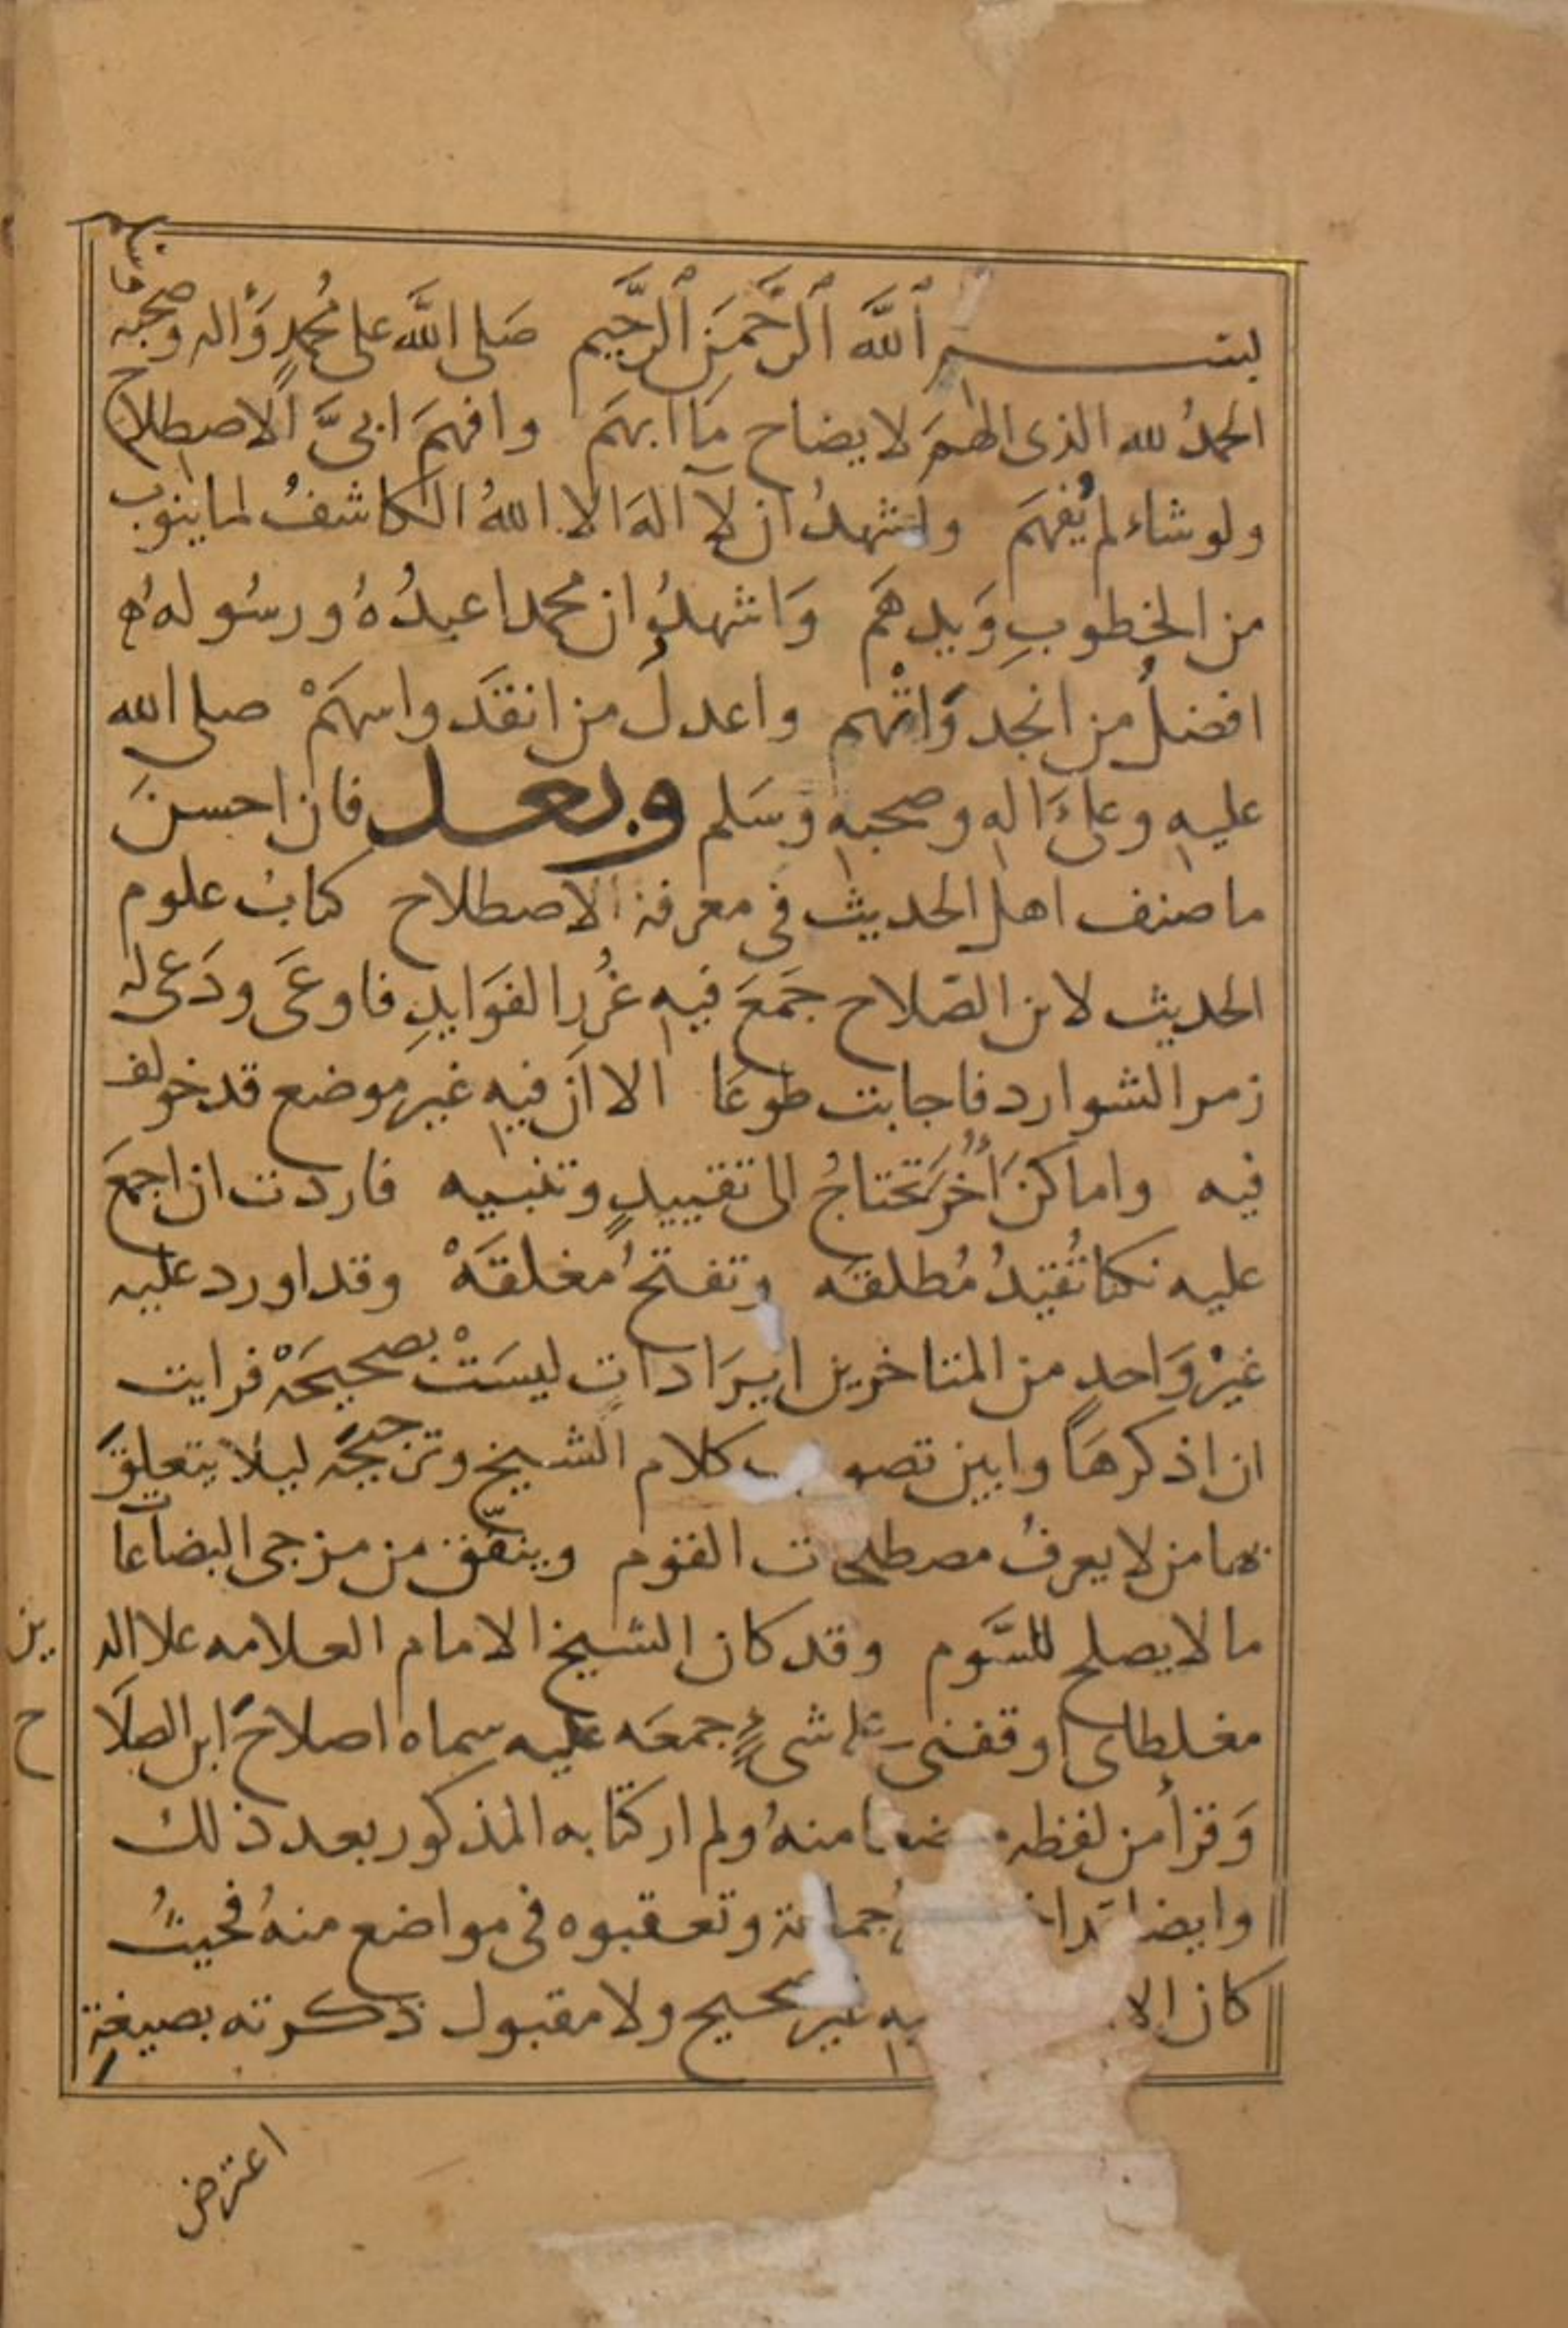 بسم ٱلله ٱلرَّحْمَنِ ٱلرَّحِيم صَلى اللَّه على مُحمدٍ وَّاله وصحبه
الحمدُ لله الذى الهمَ لايضاح مَا ابهَم وافهمَ ابىَّ الاصطلاح
ولو شاء لم يُفهَم واشهدُ ان لا اله الا اللهُ الكاشفُ لما ينوب
من الخطوبِ وَيدهَم وَاشهدُ ان محمدا عبدُهُ ورسُولهُ
افضلُ من انجد وَاتْهم واعدلُ من انقدَ واسهَمْ صلى الله
عليه وعلى اله وصحبه وَسَلم وبعد فان احسنَ
ما صنف اهل الحديث فى معرفة الاصطلاح كتابُ علوم
الحديث لابن الصَلاح جَمَعَ فيه غُررَ الفوَايدِ فاوعَى ودَعى له
زمر الشوارد فاجابت طوعَا الا ان فيه غير موضع قد خولف
فيه واماكنَ أُخَرَ تحتاجُ الى تقييدٍ وتنبيه فاردت ان اجمعَ
عليه نكتا تُقيّدُ مُطلقه وتفتحُ مغلقَهْ وقد اورد عليه
غيرُ وَاحدٍ من المتاخرين ايرَاداتٍ ليسَتْ بصحيحَهْ فرايت
ان اذكرهَا وابين تصو ب كلام الشيخ وترجيحَه ليلا يتعلقَ
بها من لا يعرفُ مصطلحات القوم وينفّق من مزجى البضاعات
ما لا يصلح للسَّوم وقد كان الشيخ الامام العلامه علا الدين
مغلطاى اوقفنى على شىءٍ جمعَه عليه سماه اصلاحَ ابن الصلاح
وَقرأ من لفظه منه ولم ار كتابه المذكور بعد ذلك
وايضا جماعة وتعقبوه فى مواضع منهُ فحيثُ
كان غير صحيح ولا مقبول ذكرته بصيغة
اعترض